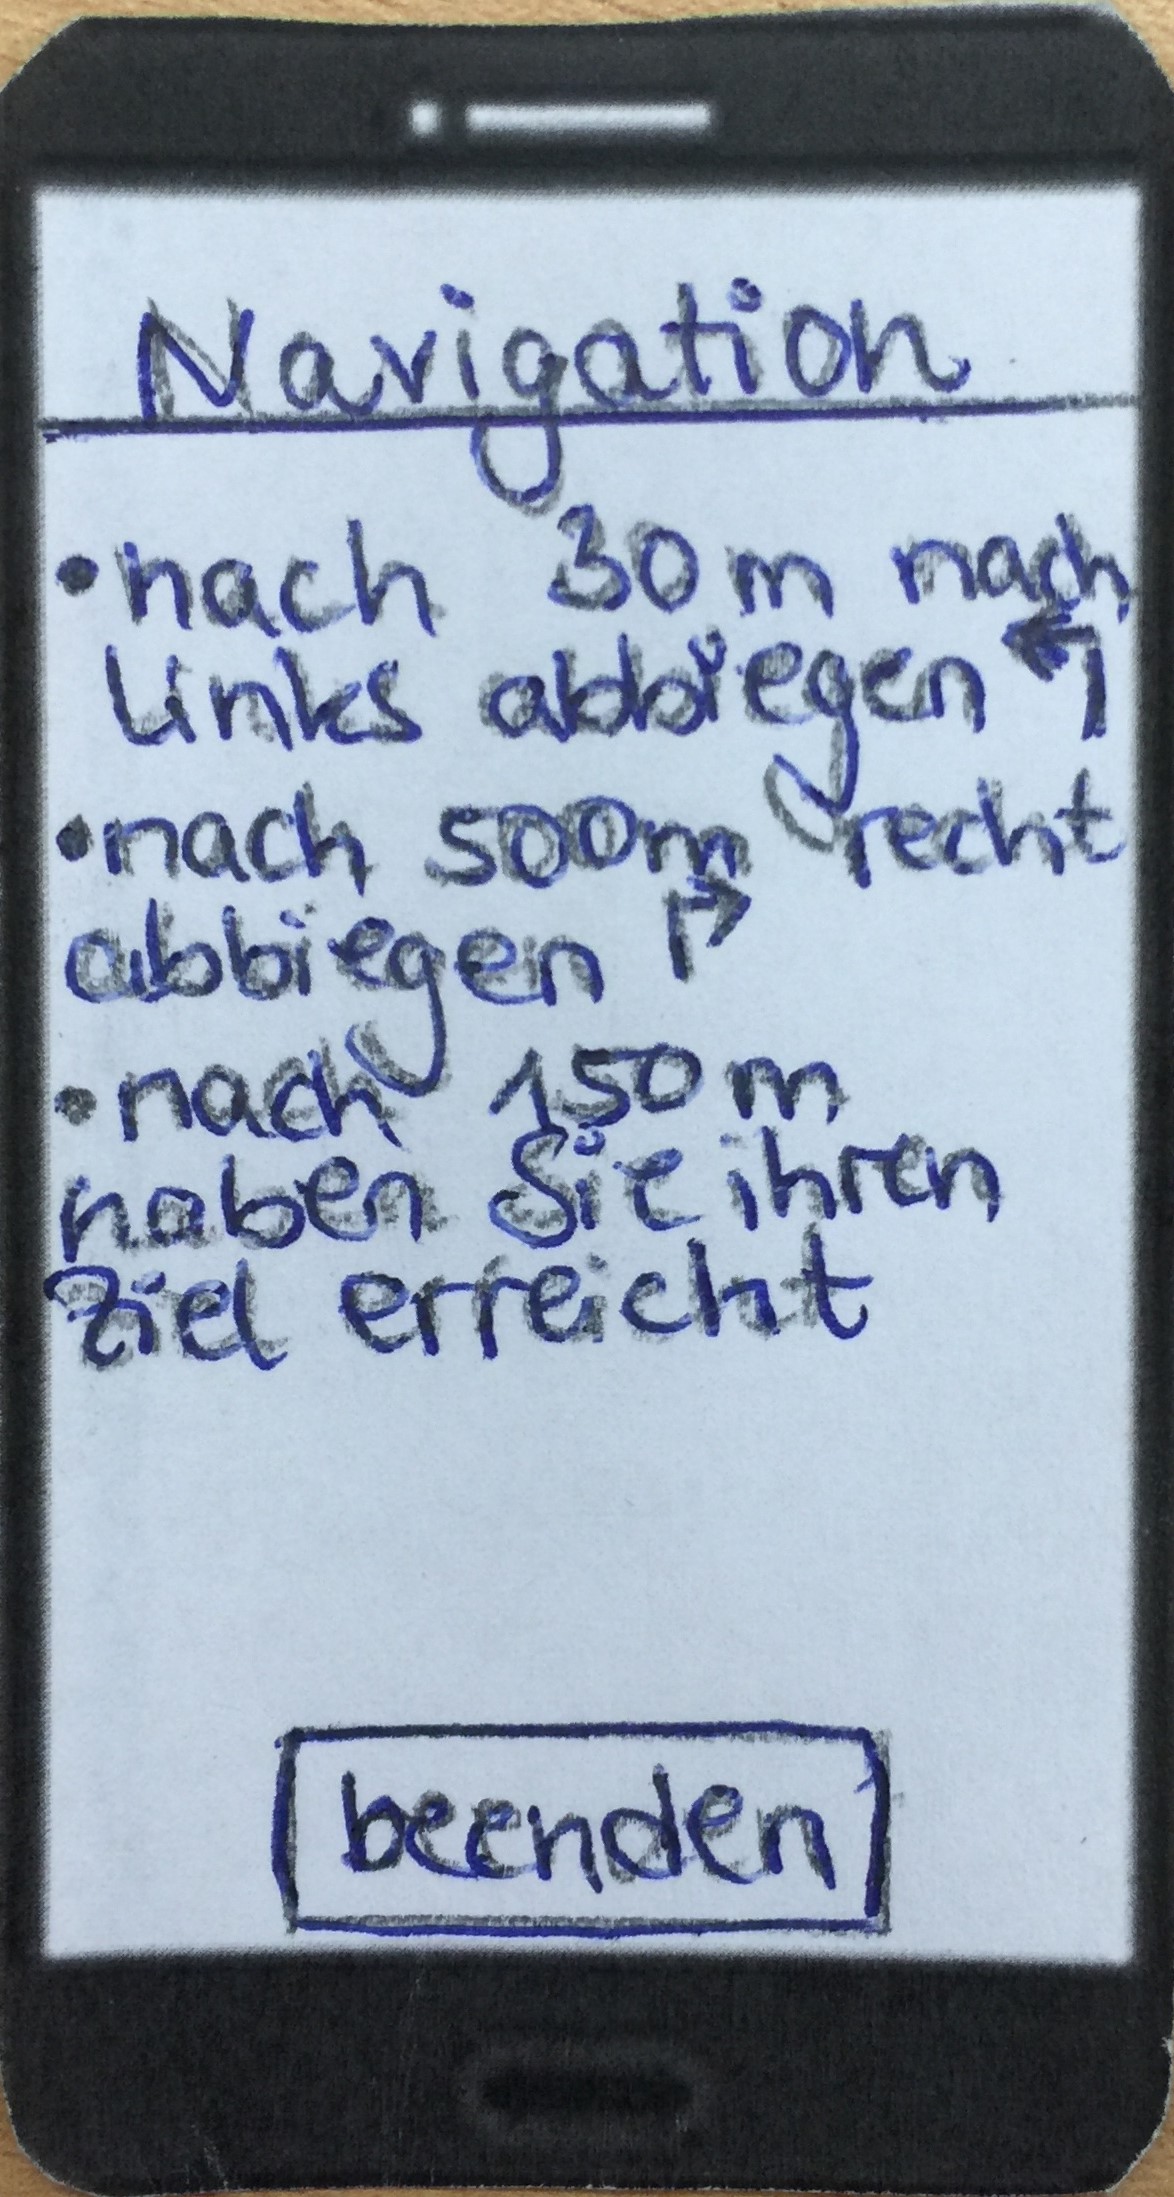 Navigation
• nach 30m nach
links abbiegen ↰
• nach 500m recht
abbiegen ↱
• nach 150m
haben Sie ihren
Ziel erreicht
beenden